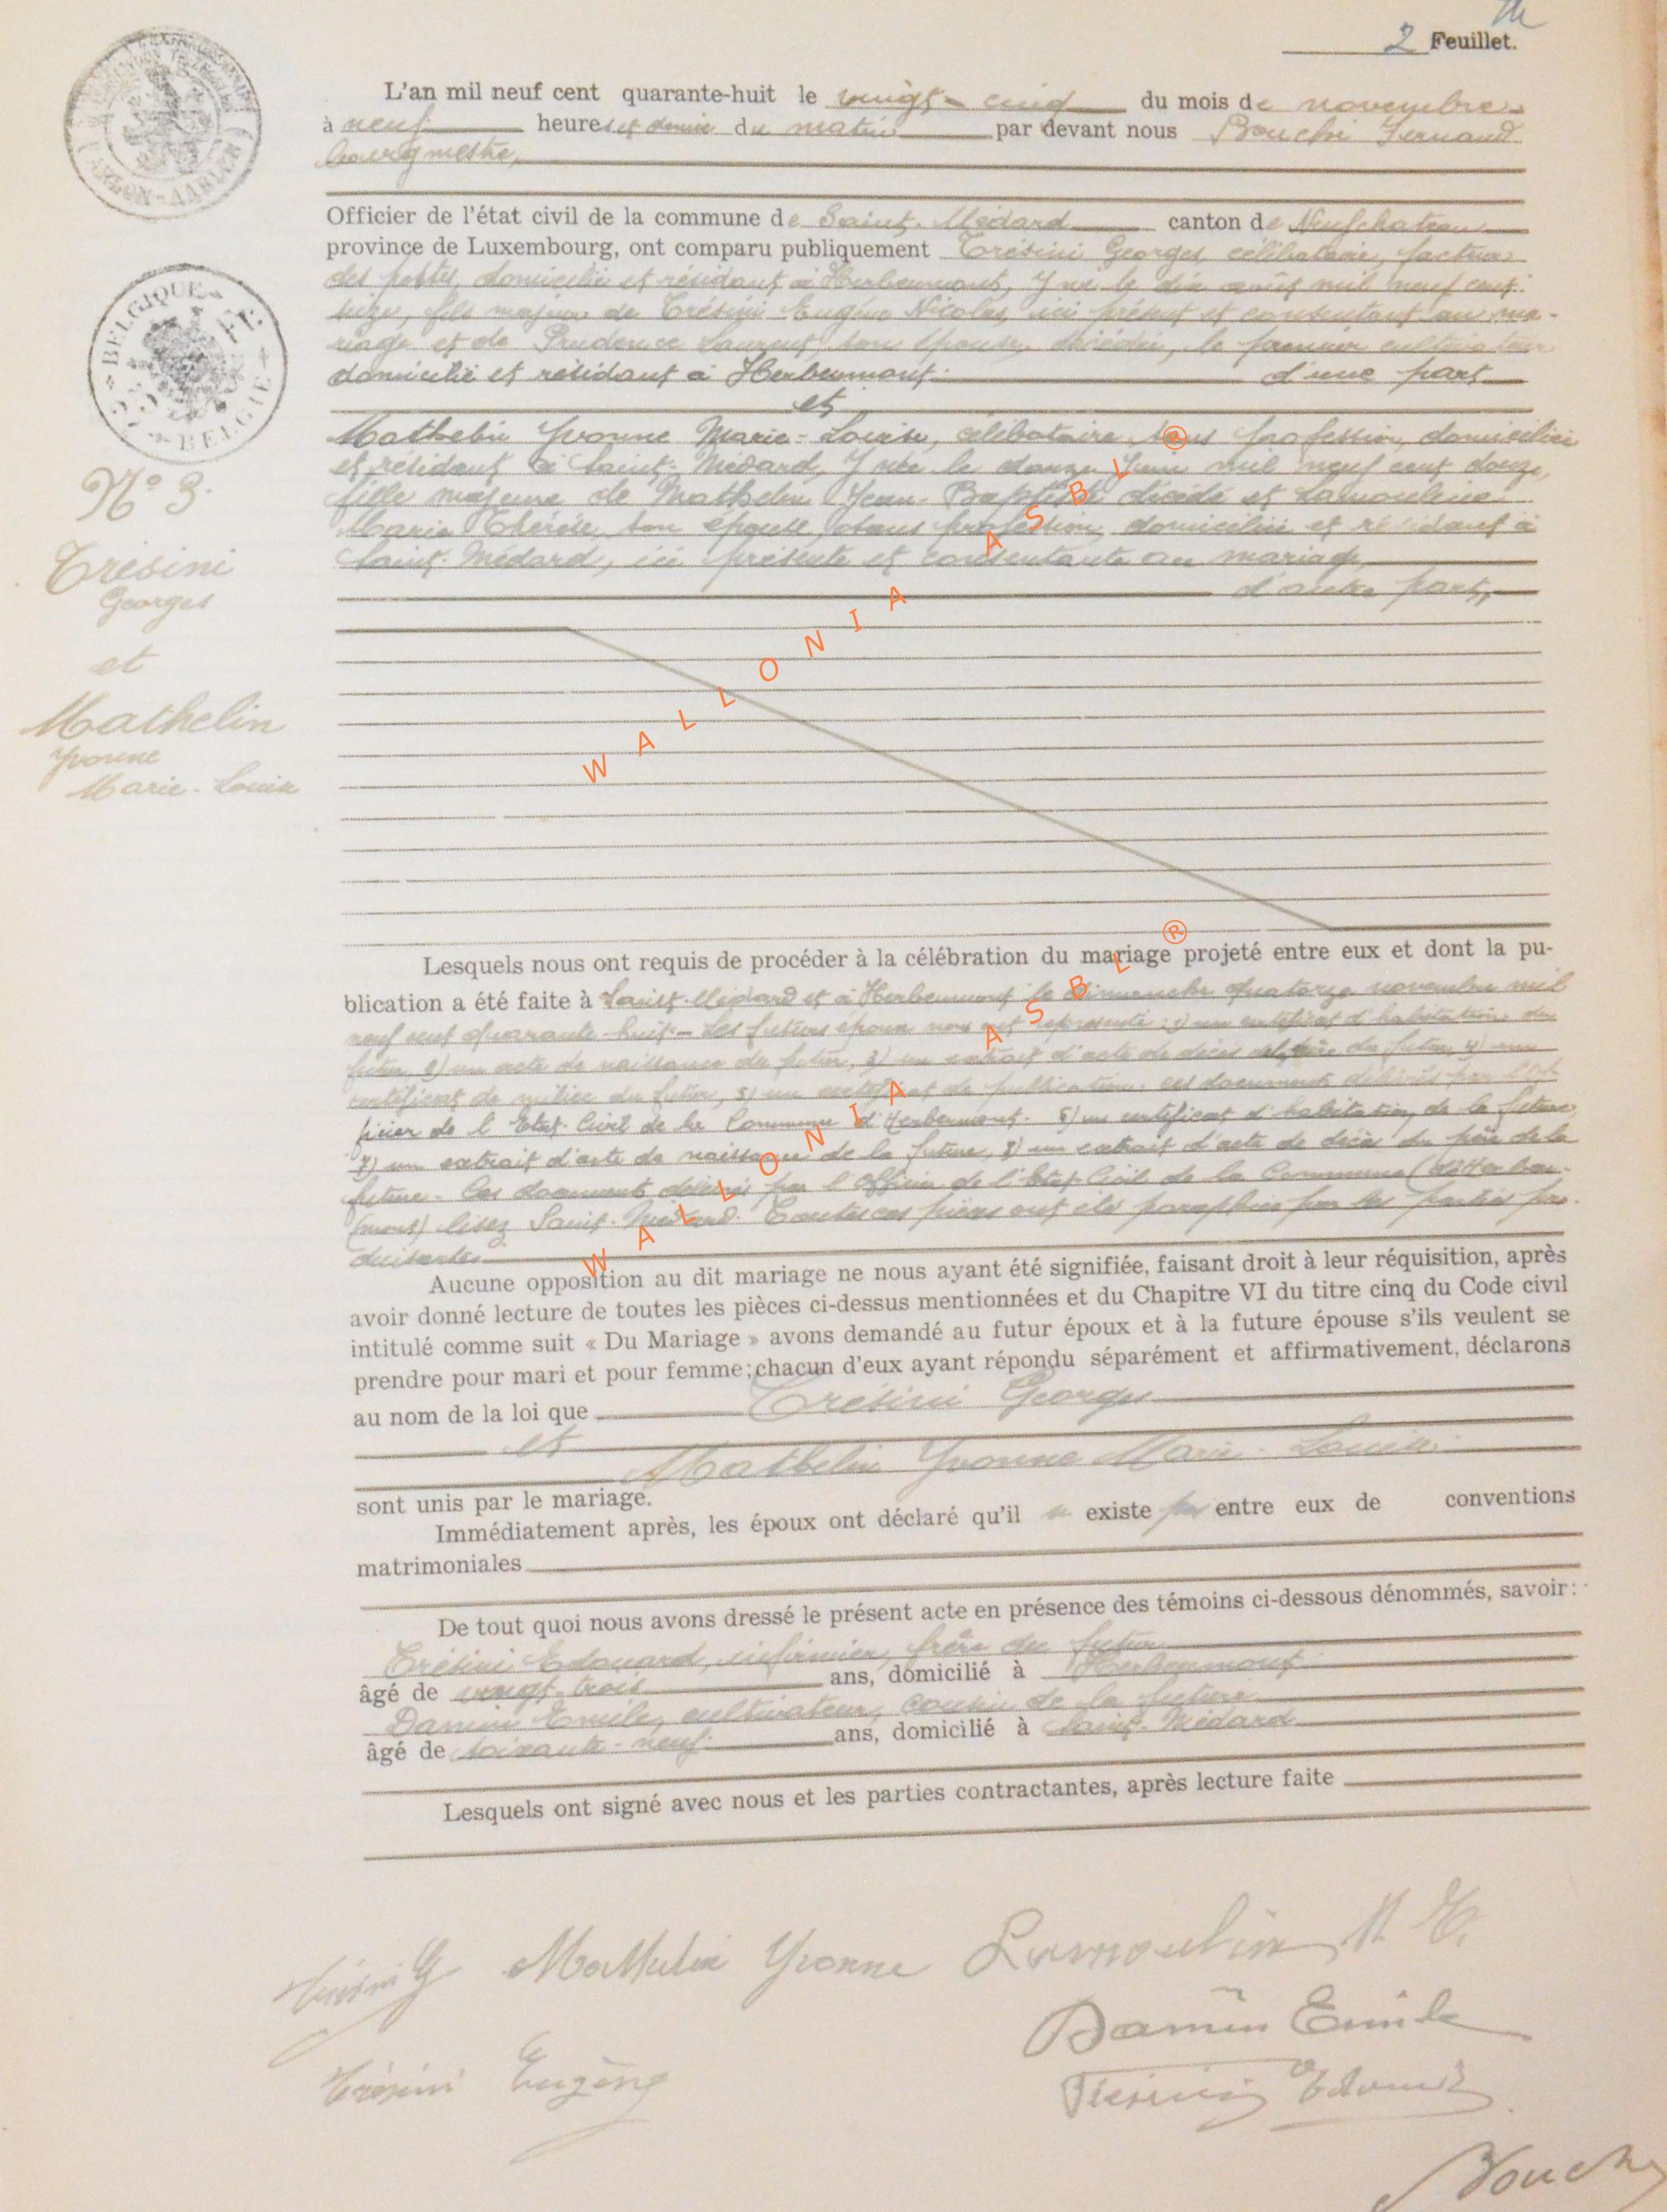 2 Feuillet.
L'an mil neuf cent quarante-huit le vingt-cinq du mois de novembre
à neuf heures et demie du matin par devant nous Bouché Fernand
bourgmestre,
Officier de l'état civil de la commune de Saint-Médard canton de Neufchateau
province de Luxembourg, ont comparu publiquement Trésini Georges, célibataire, facteur
des postes, domicilié et résidant à Herbeumont, y né le dix août mil neuf cent
seize, fils majeur de Trésini Eugène Nicolas, ici présent et consentant au ma-
riage et de Prudence Laurent, son épouse, décédée, le premier cultivateur
domicilié et résidant à Herbeumont. d'une part
et
Mathelin Yvonne Marie-Louise, célibataire, sans profession, domiciliée
et résidant à Saint-Médard, y née le douze juin mil neuf cent douze,
fille majeure de Mathelin Jean-Baptiste décédé et Lamouline
Marie Thérèse, son épouse, sans profession, domiciliée et résidant à
Saint-Médard, ici présente et consentante au mariage,
d'autre part,
N° 3.
Trésini
Georges
et
Mathelin
Yvonne
Marie-Louise
Lesquels nous ont requis de procéder à la célébration du mariage projeté entre eux et dont la pu-
blication a été faite à Saint-Médard et à Herbeumont le dimanche quatorze novembre mil
neuf cent quarante-huit. - Les futurs époux nous ont représenté : 1) un certificat d'habitation du
futur, 2) un acte de naissance du futur, 3) un extrait d'acte de décès de la mère du futur, 4) un
certificat de milice du futur, 5) un certificat de publication. ces documents délivrés par l'Of-
ficier de l'Etat-Civil de la Commune d'Herbeumont. 6) un certificat d'habitation de la future,
7) un extrait d'acte de naissance de la future, 8) un extrait d'acte de décès du père de la
future. - Ces documents délivrés par l'Officier de l'Etat-Civil de la Commune (d'Herbeu-
mont) lisez Saint-Médard. Toutes ces pièces ont été paraphées par les parties pro-
duisantes.
Aucune opposition au dit mariage ne nous ayant été signifiée, faisant droit à leur réquisition, après
avoir donné lecture de toutes les pièces ci-dessus mentionnées et du Chapitre VI du titre cinq du Code civil
intitulé comme suit « Du Mariage » avons demandé au futur époux et à la future épouse s'ils veulent se
prendre pour mari et pour femme; chacun d'eux ayant répondu séparément et affirmativement, déclarons
au nom de la loi que Trésini Georges
et
Mathelin Yvonne Marie-Louise
sont unis par le mariage.
Immédiatement après, les époux ont déclaré qu'il n' existe pas entre eux de conventions
matrimoniales
De tout quoi nous avons dressé le présent acte en présence des témoins ci-dessous dénommés, savoir :
Trésini Edouard, infirmier, frère du futur
âgé de vingt-trois ans, domicilié à Herbeumont
Damin Emile, cultivateur, cousin de la future
âgé de soixante-neuf ans, domicilié à Saint-Médard
Lesquels ont signé avec nous et les parties contractantes, après lecture faite
Trésini G Mathelin Yvonne Lamouline M T.
Damin Emile
Trésini Eugène Trésini Edouard
Bouché
BELGIQUE BELGIE
ARLON-AARLEN
WALLONIA ASBL ®
WALLONIA ASBL ®